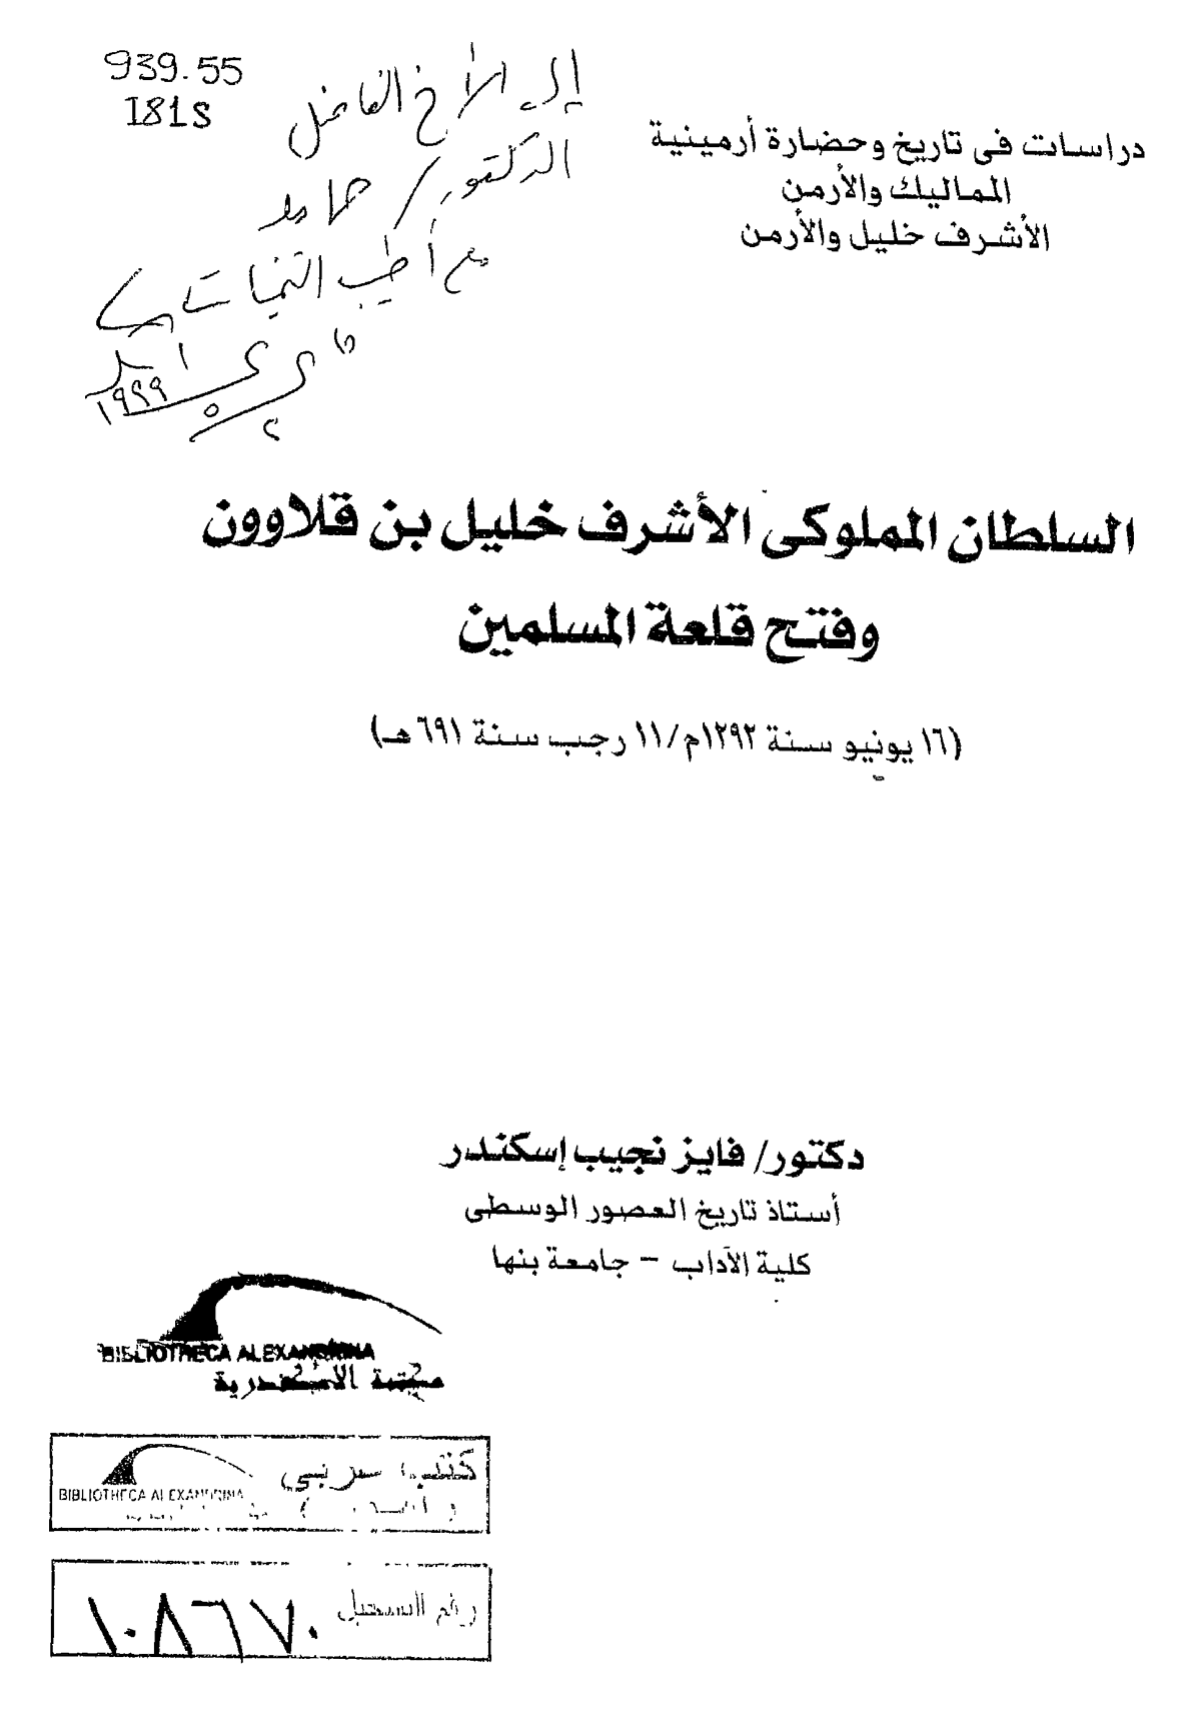 939.55
I81S
إلى الأخ الفاضل
الدكتور / حامد
مع أطيب التمنيات
دراسات فى تاريخ وحضارة أرمينية
المماليك والأرمن
الأشرف خليل والأرمن
السلطان المملوكى الأشرف خليل بن قلاوون
وفتح قلعة المسلمين
(١٦ يونيو سنة ١٢٩٢م/١١ رجب سنة ٦٩١ هـ)
دكتور/ فايز نجيب إسكندر
أستاذ تاريخ العصور الوسطى
كلية الآداب – جامعة بنها
BIBLIOTHECA ALEXANDRINA
مكتبة الأسكندرية
كتب عربي
BIBLIOTHECA ALEXANDRINA
رقم التسجيل ١٠٨٦٧٠